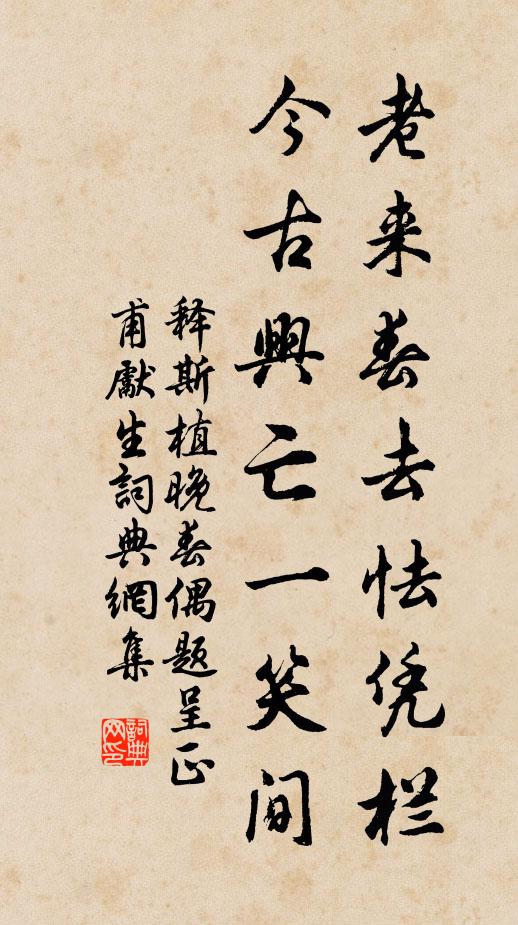 老来春去怯凭栏
今古興亡一笑间
释斯植晚春偶题呈正
甫獻生詞典網集
詞典
网印